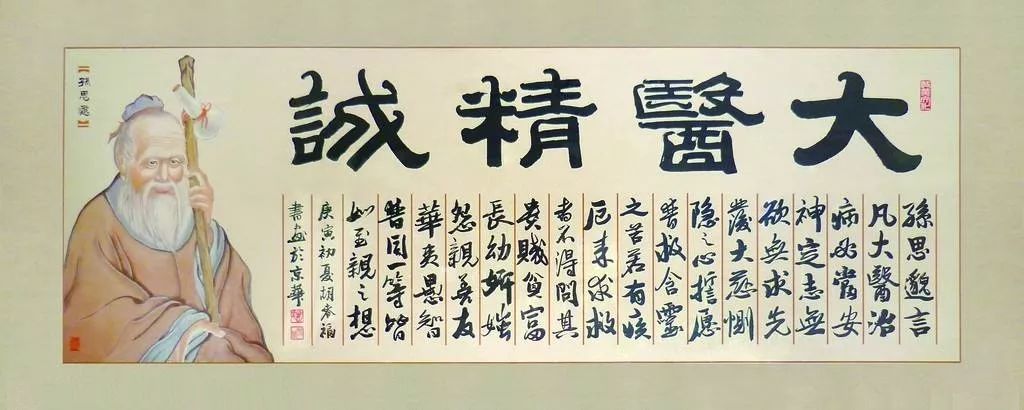 大醫精誠
孫思邈言
凡大醫治
病必當安
神定志無
欲無求先
發大慈惻
隐之心誓愿
普救含靈
之苦若有疾
厄来求救
者不得問其
貴賤貧富
長幼妍媸
怨親善友
華夷愚智
普同一等皆
如至親之想
庚寅初夏胡福
書畫於京華
【孫思邈】